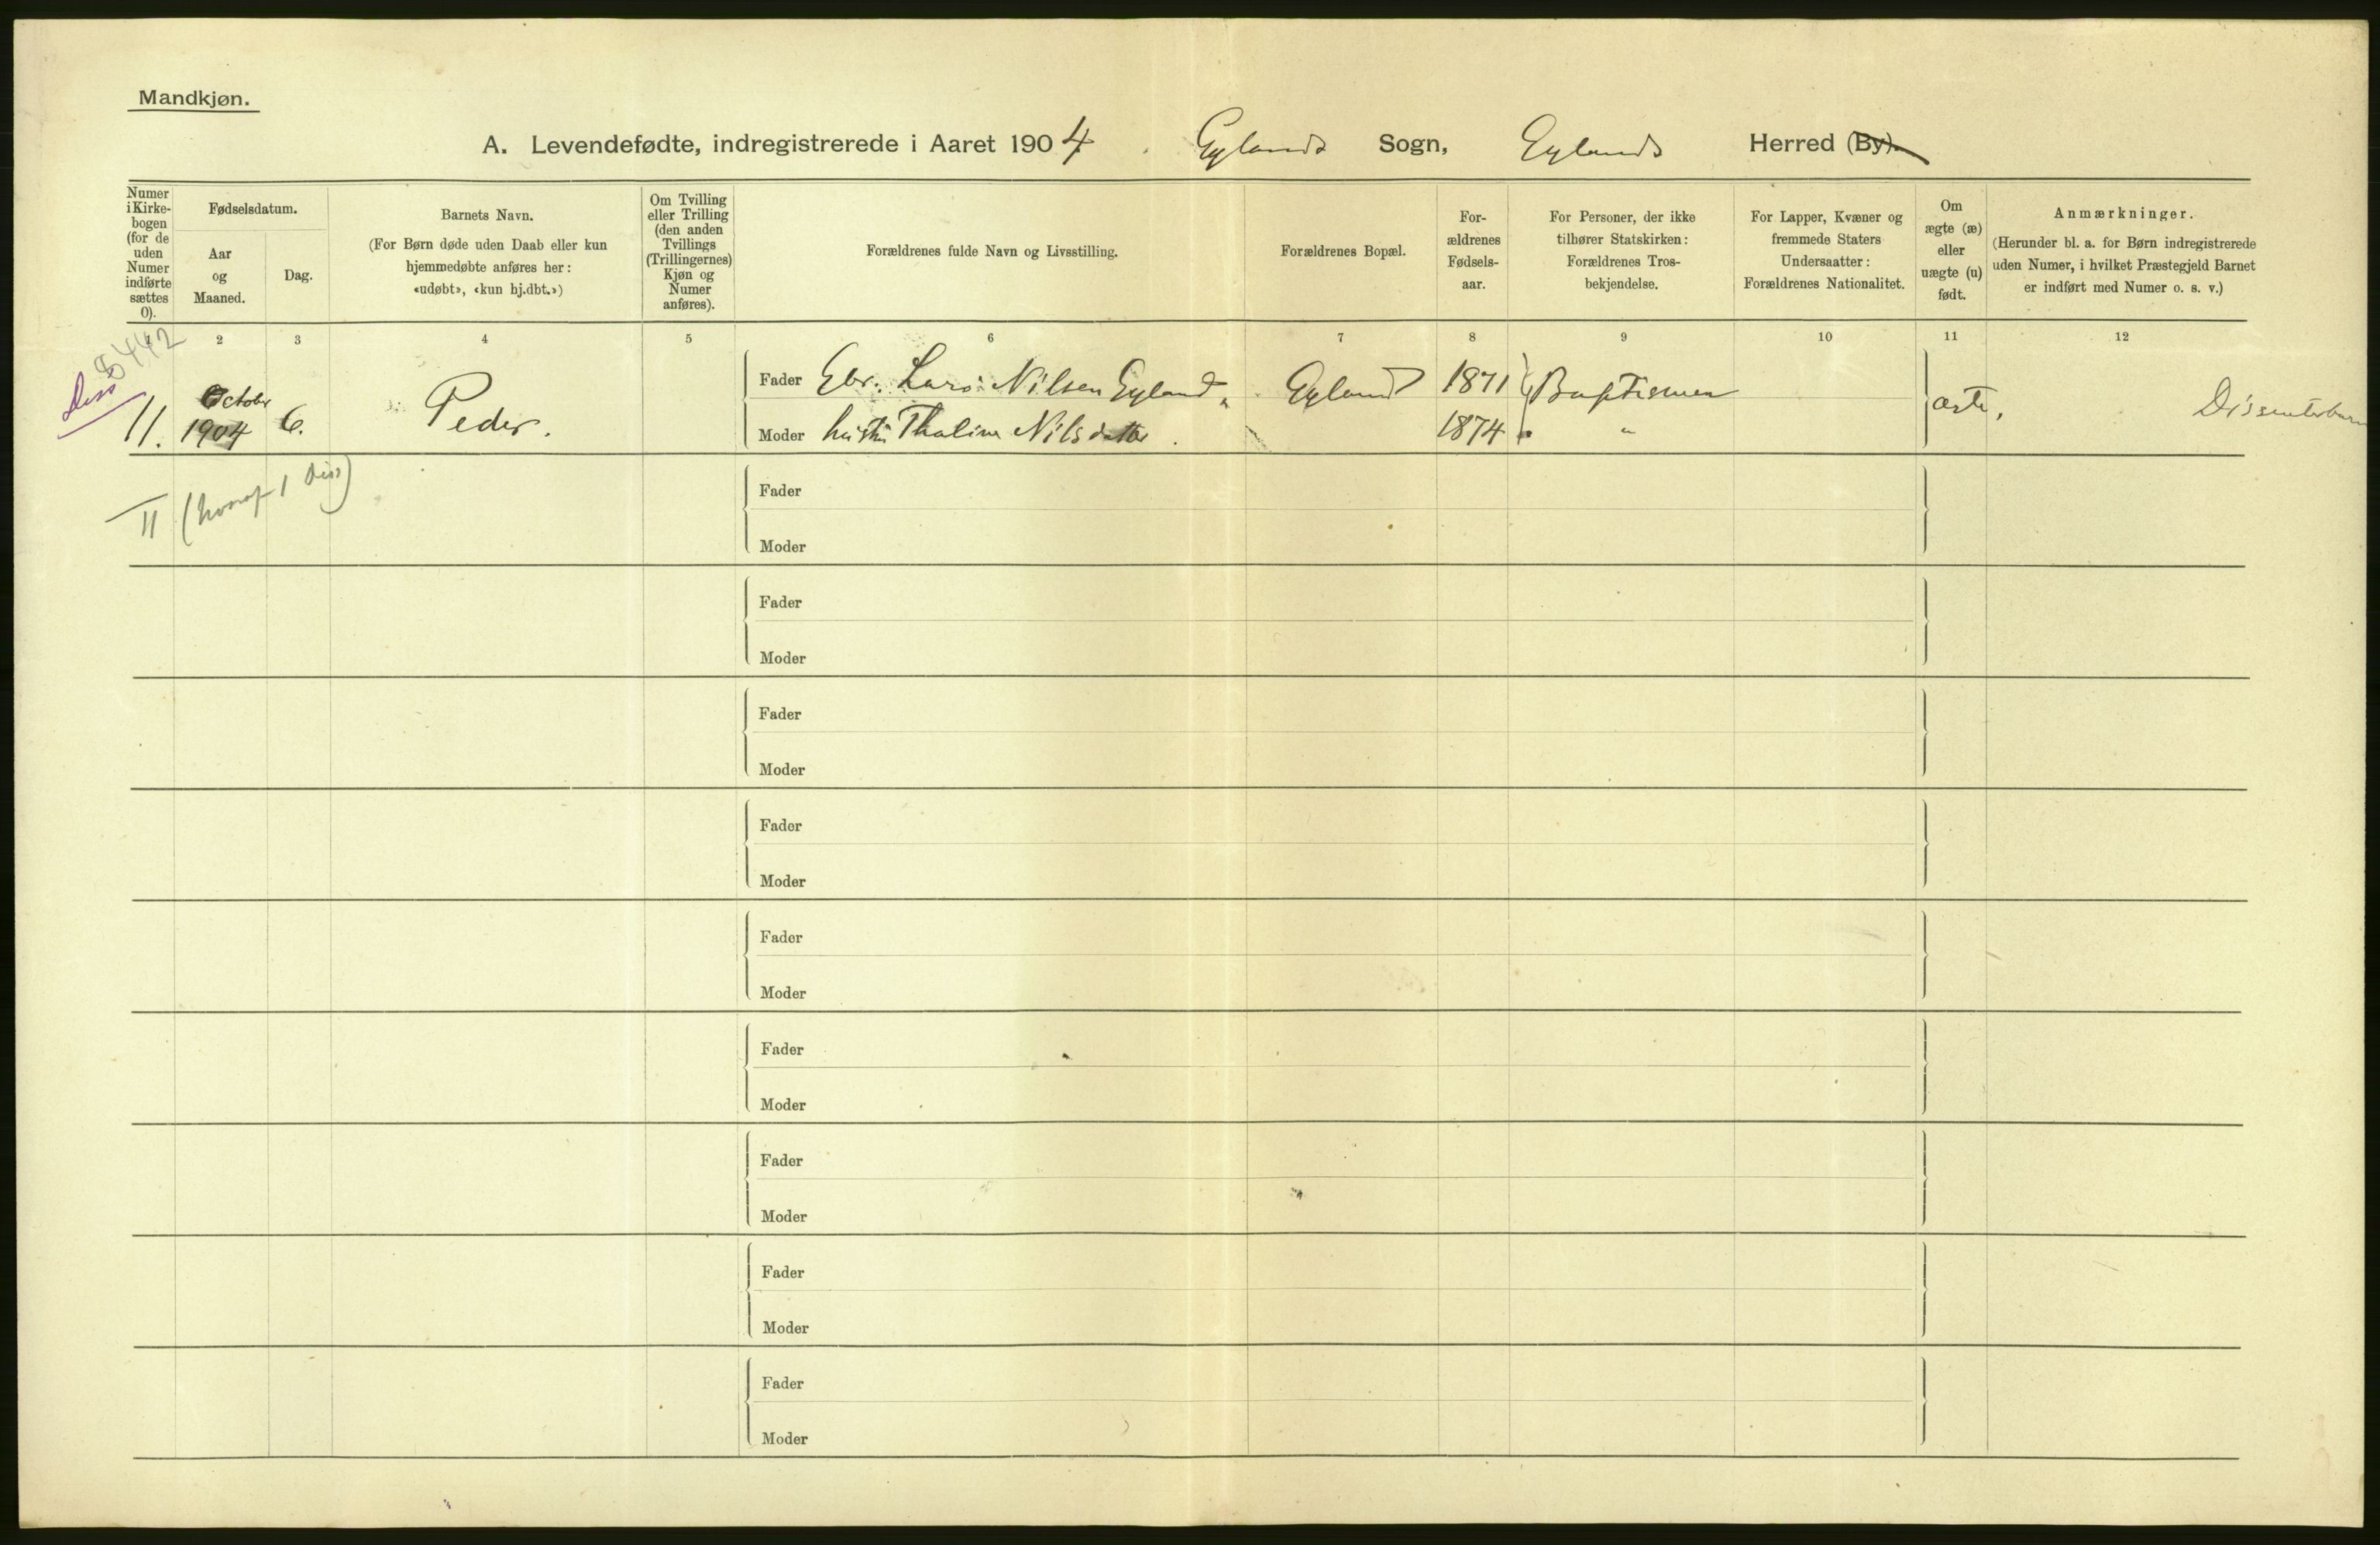 Mandkjøn.
A. Levendefødte, indregistrerede i Aaret 1904. Eylands Sogn, Eylands Herred (By).
Numer i Kirke-bogen (for de uden Numer indførte sættes 0).
Fødselsdatum.
Aar og Maaned.
Dag.
Barnets Navn.
(For Børn døde uden Daab eller kun hjemmedøbte anføres her: «udøbt», «kun hj.dbt.»)
Om Tvilling eller Trilling (den anden Tvillings (Trillingernes) Kjøn og Numer anføres).
Forældrenes fulde Navn og Livsstilling.
Forældrenes Bopæl.
For-ældrenes Fødsels-aar.
For Personer, der ikke tilhører Statskirken: Forældrenes Tros-bekjendelse.
For Lapper, Kvæner og fremmede Staters Undersaatter: Forældrenes Nationalitet.
Om ægte (æ) eller uægte (u) født.
Anmærkninger.
(Herunder bl. a. for Børn indregistrerede uden Numer, i hvilket Præstegjeld Barnet er indført med Numer o. s. v.)
2 3 4 5 6 7 8 9 10 11 12
5442
Diss
11. October 1904 6. Peder.
Fader Gbr. Lars Nilsen Eyland, Eyland 1871
Moder Thaline Nilsdatter. 1874 "
Dissenterbarn
11 (hvoraf 1 Diss)
Fader
Moder
Fader
Moder
Fader
Moder
Fader
Moder
Fader
Moder
Fader
Moder
Fader
Moder
Fader
Moder
Fader
Moder